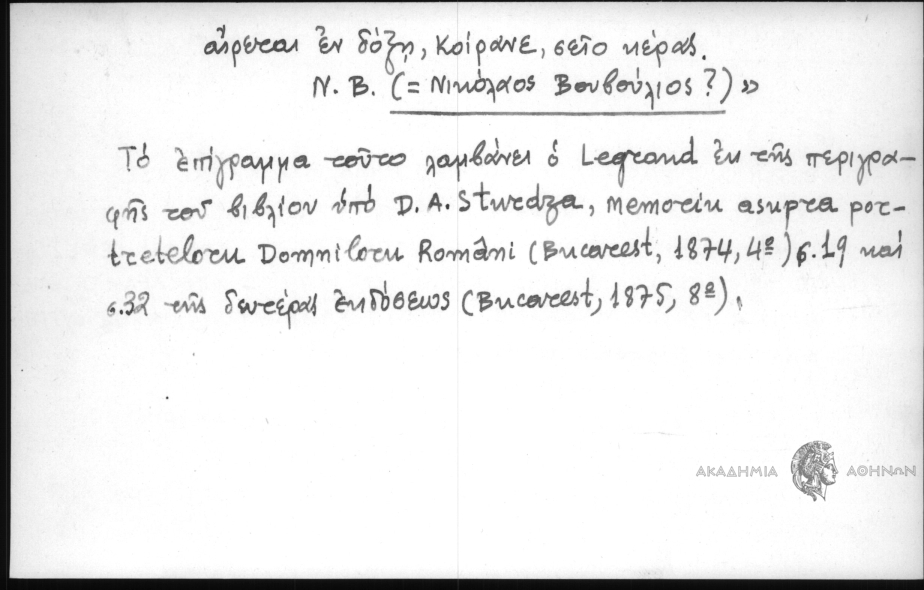 αἴρεται ἐν δόξῃ, Κοίρανε, σεῖο κέρας.
Ν. Β. (= Νικόλαος Βουβούλιος ?) »
Τό ἐπίγραμμα τοῦτο λαμβάνει ὁ Legrand ἐκ τῆς περιγρα-
φῆς τοῦ βιβλίου ὑπό D. A. Sturdza, Memoriu asupra por-
treteloru Domniloru Români (Bucarest, 1874, 4º) σ. 19 καί
σ. 32 τῆς δευτέρας ἐκδόσεως (Bucarest, 1875, 8º).
ΑΚΑΔΗΜΙΑ ΑΘΗΝΩΝ